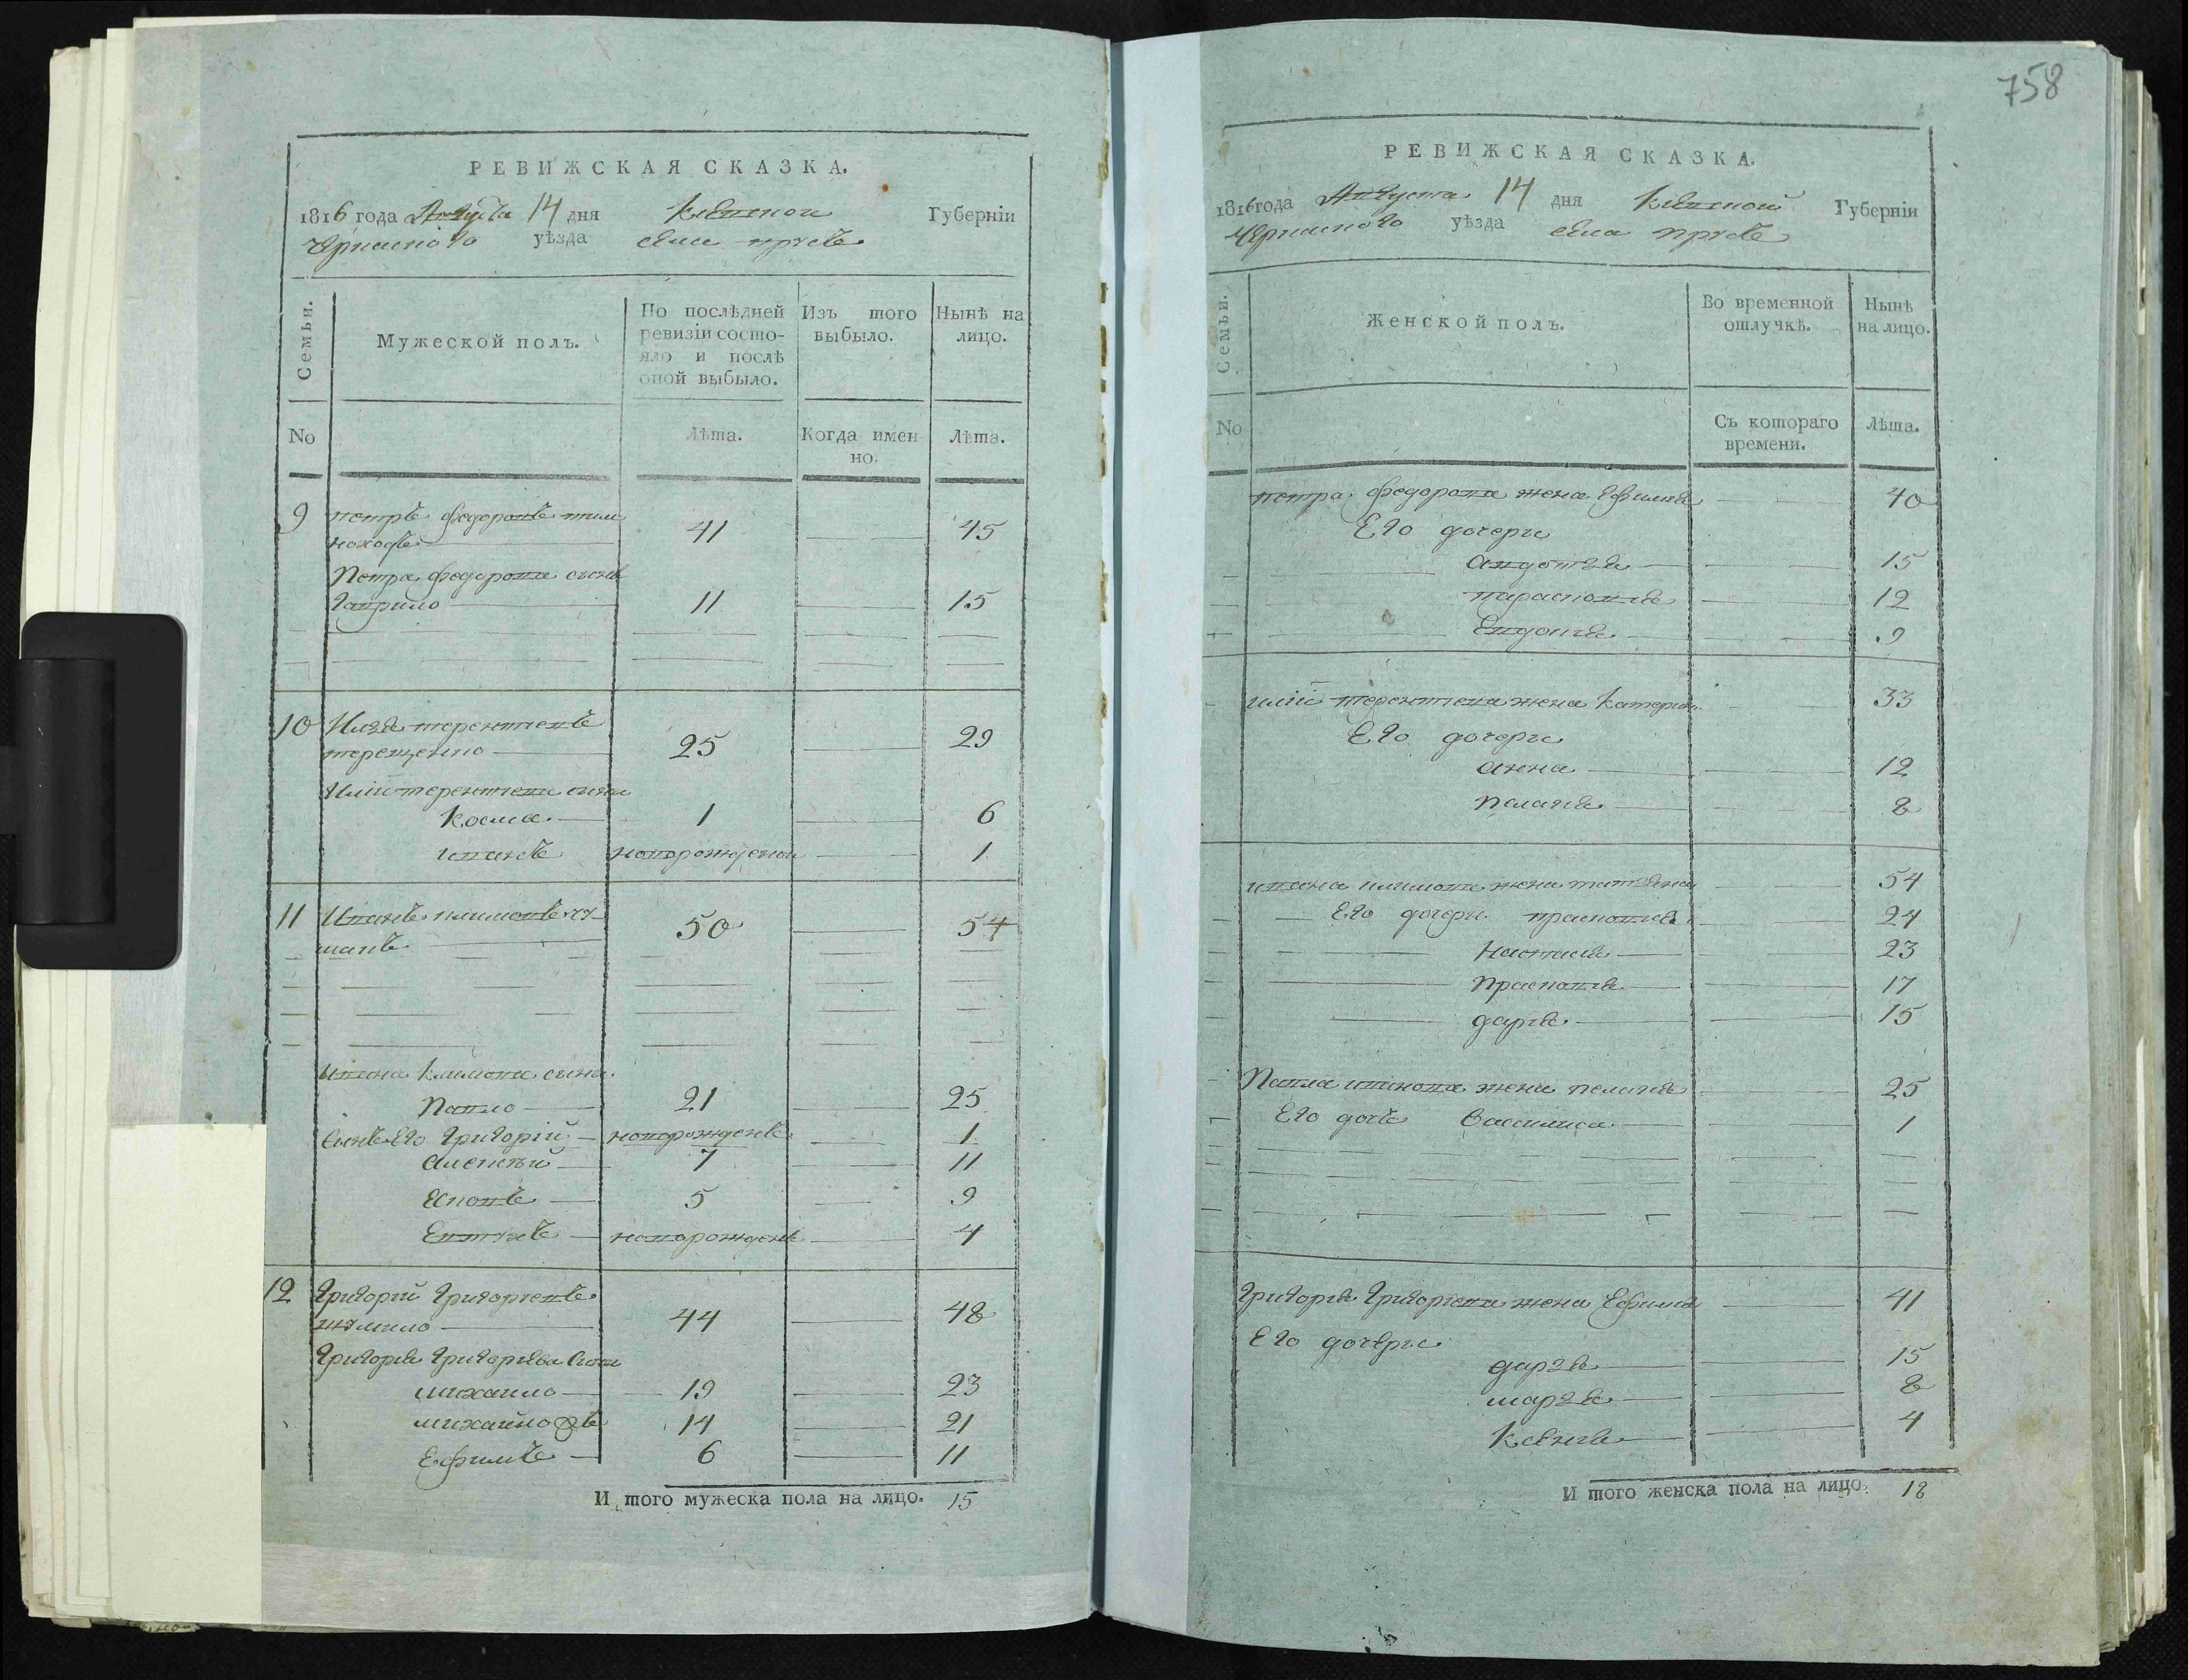 758
РЕВИЖСКАЯ СКАЗКА.
1816 года Августа 14 дня Киевской Губерніи
Черкаского уѣзда села прусъ
Семьи.
Мужеской полъ.
По послѣдней ревизіи состояло и послѣ оной выбыло.
Изъ того выбыло.
Нынѣ на лицо.
No
Лѣта.
Когда именно.
Лѣта.
9 петръ федоровъ 41 45
Петра федорова сынъ
Гаврило 11 15
10 Илья терентіевъ 25 29
терещенко
Иліи терентіева сыны
Косма 1 6
иванъ новорожденои 1
11 Иванъ климовъ 50 54
Ивана Климова сыны
Павло 21 25
Сынъ Его Григорій новорожденъ 1
алексѣй 7 11
Есиовъ 5 9
новорожденъ 4
12 Григорій Григоріевъ 44 48
Григорія Григоріева сыны
михаило 19 23
михайло 2й 14 21
Ефимъ 6 11
И того мужеска пола на лицо. 15
РЕВИЖСКАЯ СКАЗКА.
1816 года Августа 14 дня Киевской Губерніи
Черкаского уѣзда села прусъ
Семьи.
Женской полъ.
Во временной отлучкѣ.
Нынѣ на лицо.
No
Съ котораго времени.
Лѣта.
петра федорова жена Ефимія 40
Его дочери
авдотья 15
парасковія 12
Евдокія 9
иліи терентіева жена Катерина 33
Его дочери
анна 12
Пелагія 8
ивана климова жена татьяна 54
Его дочери прасковія 24
Настасія 23
Прасковія 17
дарія 15
Павла иванова жена пелагія 25
Его дочь Василиса 1
Григорія Григоріева жена Ефимія 41
Его дочери
дарья 15
марья 8
Ксенія 4
И того женска пола на лицо. 18